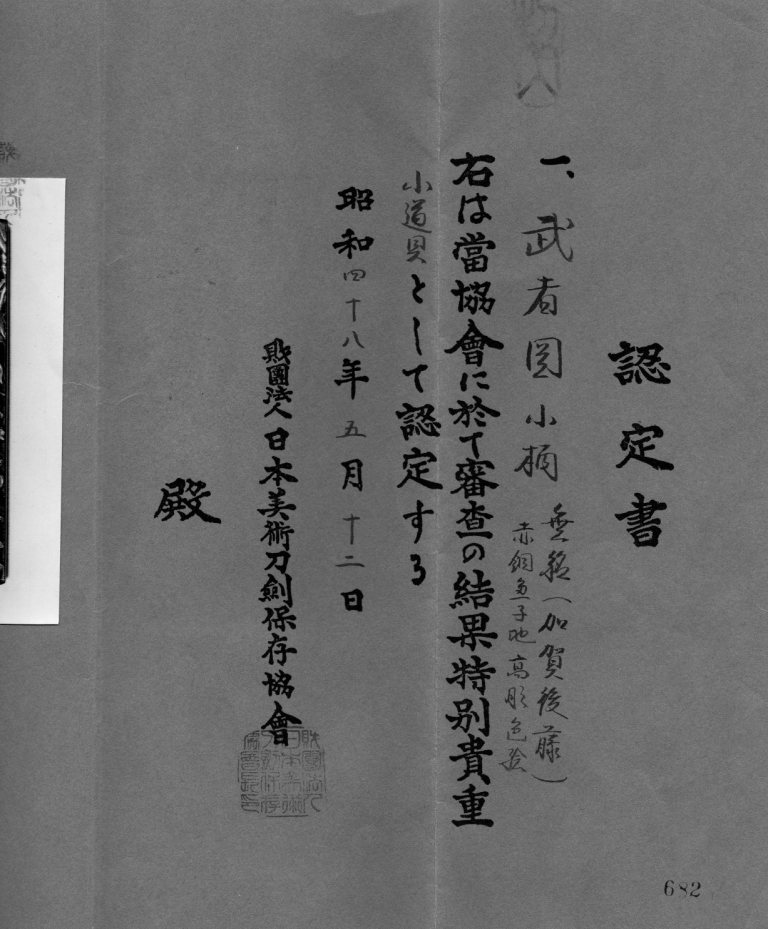 認定書
一、武者図小柄 無銘(加賀後藤)
赤銅魚子地高彫色絵
右は當協會に於て審査の結果特別貴重
小道具として認定する
昭和四十八年五月十二日
財團法人日本美術刀劍保存協會
殿
682